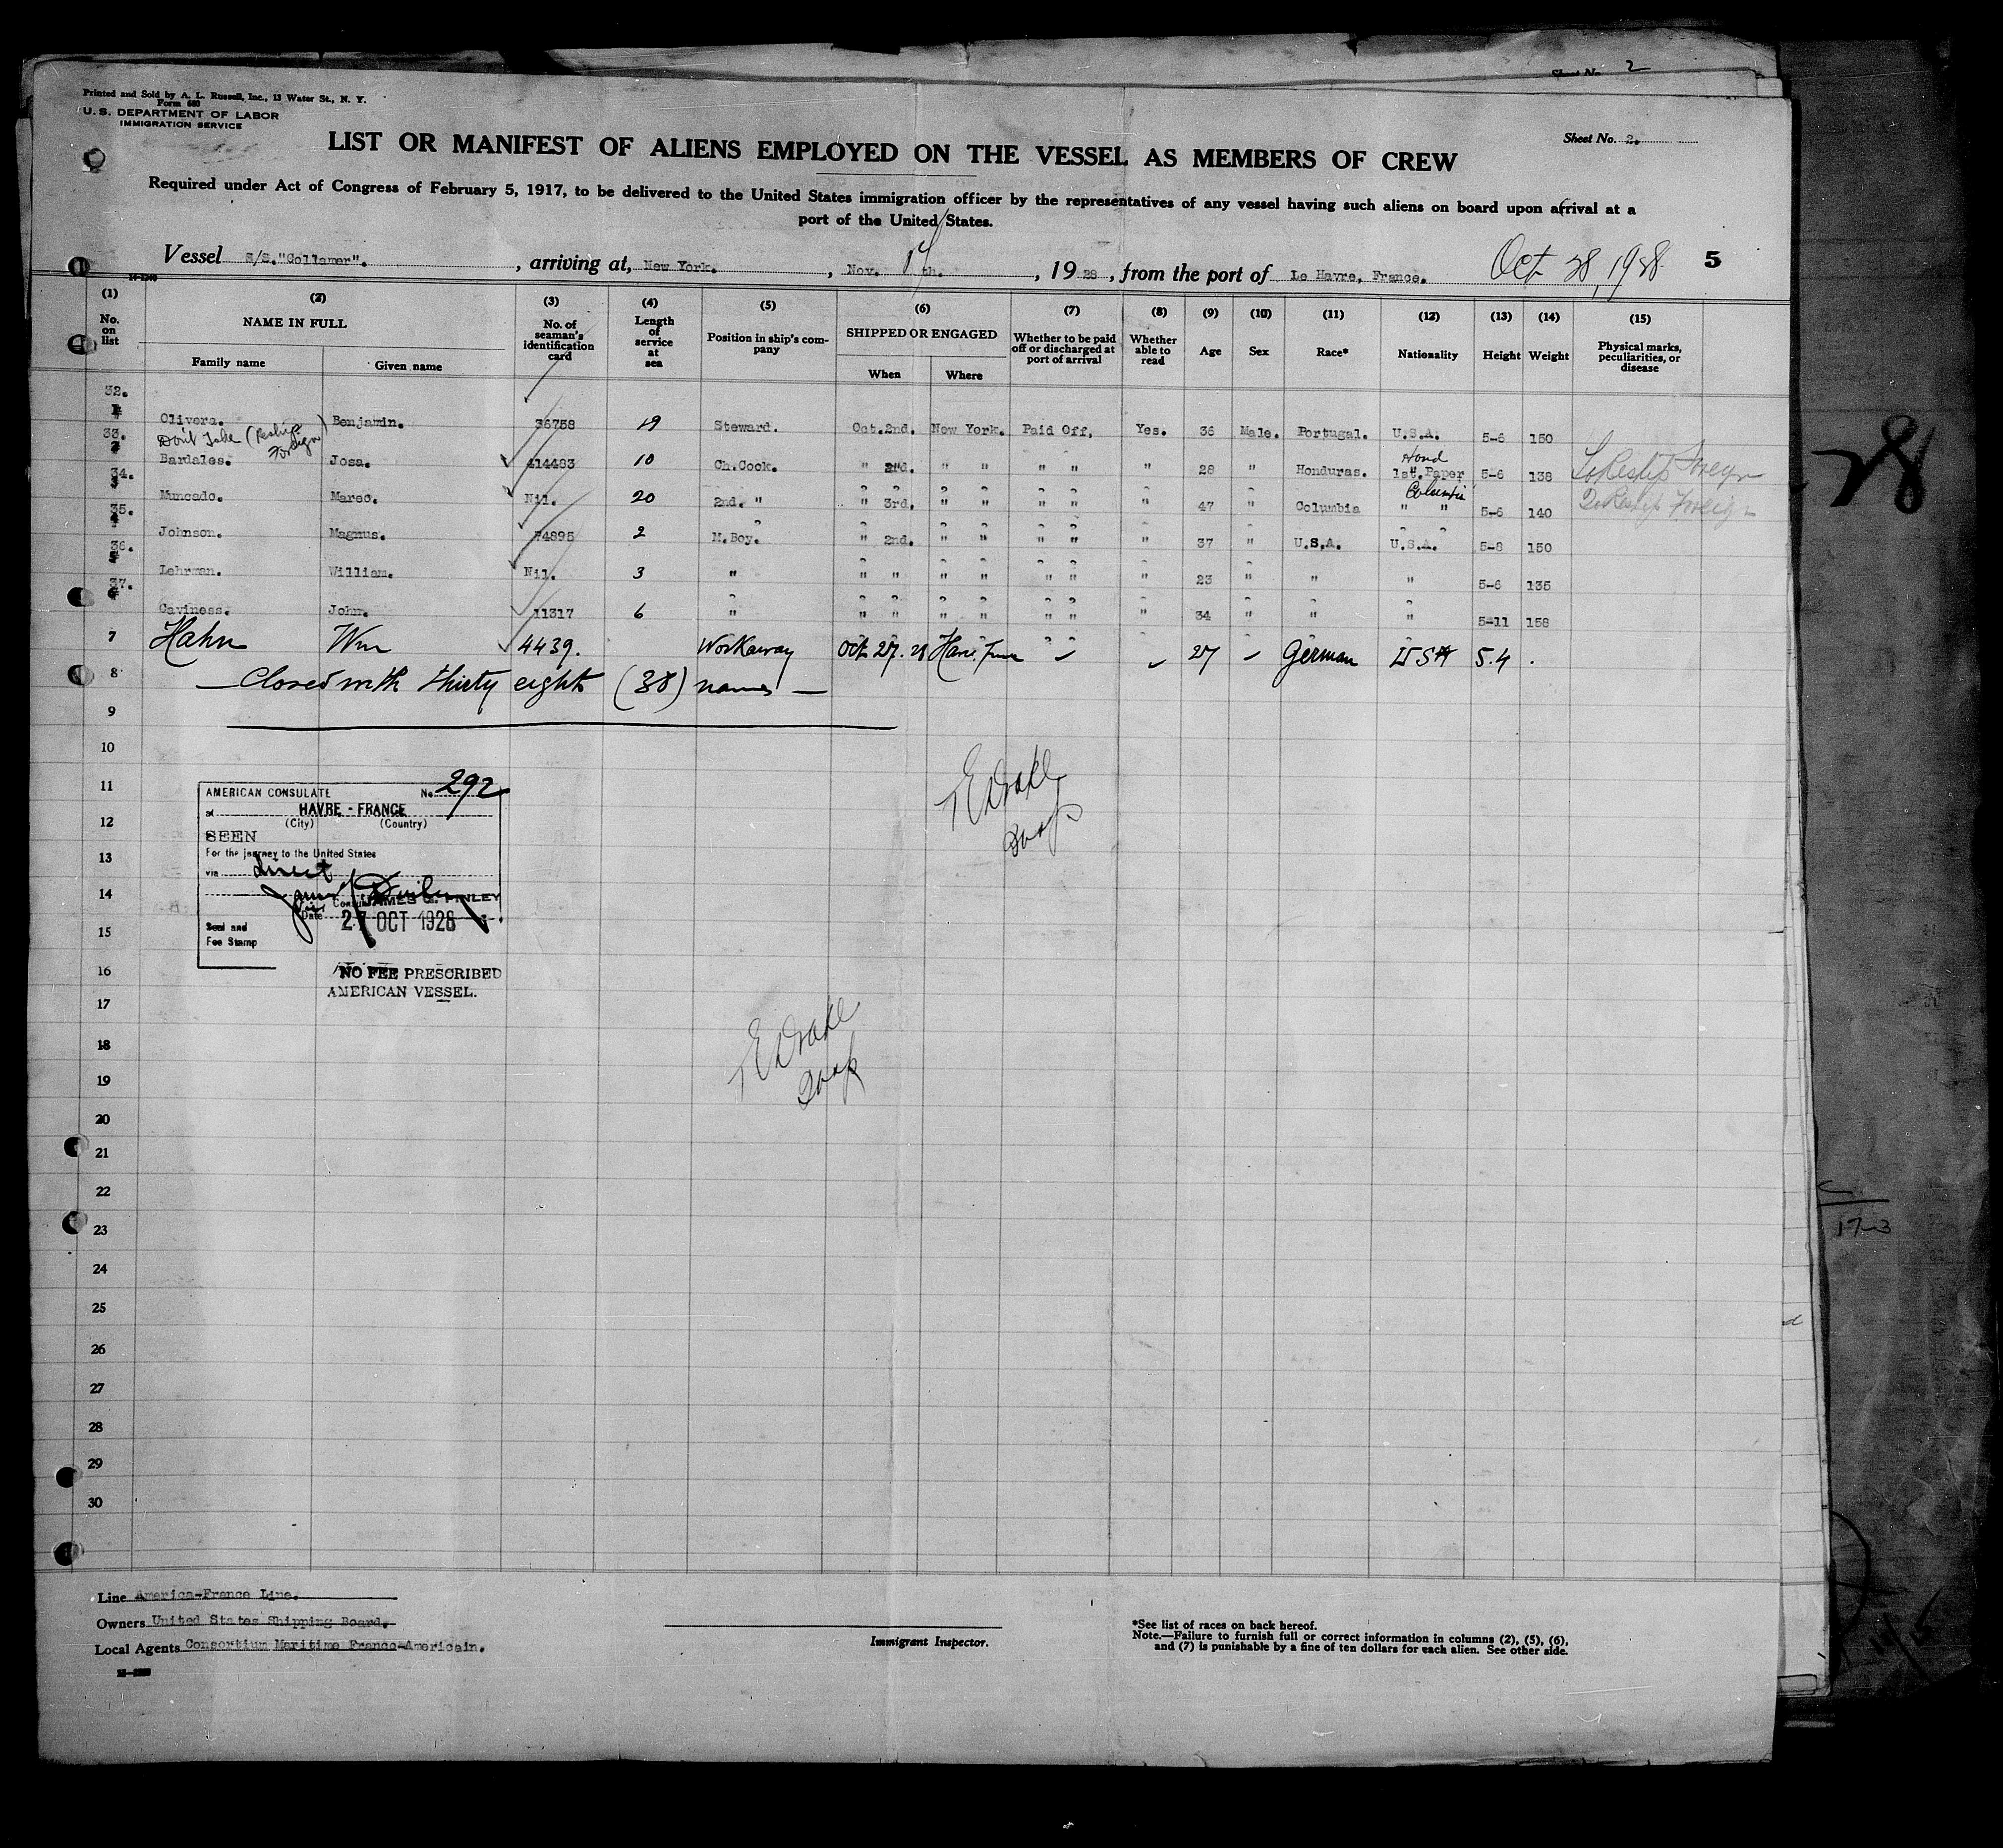 Sheet No. 2
Printed and Sold by A. L. Russell, Inc., 13 Water St., N. Y.
Form 680
U. S. DEPARTMENT OF LABOR
IMMIGRATION SERVICE
Sheet No. 2.
LIST OR MANIFEST OF ALIENS EMPLOYED ON THE VESSEL AS MEMBERS OF CREW
Required under Act of Congress of February 5, 1917, to be delivered to the United States immigration officer by the representatives of any vessel having such aliens on board upon arrival at a
port of the United States.
Vessel S/S."Collamer". , arriving at, New York. , Nov. th. , 19 28 , from the port of Le Havre, France. Oct 28, 1928 5
(1) (2) (3) (4) (5) (6) (7) (8) (9) (10) (11) (12) (13) (14) (15)
No. on list NAME IN FULL Family name Given name No. of seaman's identification card Length of service at sea Position in ship's company SHIPPED OR ENGAGED When Where Whether to be paid off or discharged at port of arrival Whether able to read Age Sex Race* Nationality Height Weight Physical marks, peculiarities, or disease
32.
Olivera. Benjamin. 36758 19 Steward. Oct.2nd. New York. Paid Off. Yes. 36 Male. Portugal. U.S.A. 5-6 150
33. Don't Take (Reship Foreign) Hond
Bardales. Josa. 414483 10 Ch.Cook. " 2nd. " " " " " 28 " Honduras. 1st.Paper 5-6 138 To Reship Foreign
34. Columbia
Muncado. Marso. Nil. 20 2nd. " " 3rd. " " " " " 47 " Columbia " " 5-6 140 To Reship Foreign
35.
Johnson. Magnus. 74895 2 M.Boy. " 2nd. " " " " " 37 " U.S.A. U.S.A. 5-8 150
36.
Lehrman. William. Nil. 3 " " " " " " " " 23 " " " 5-6 135
37.
Caviness. John. 11317 6 " " " " " " " " 34 " " " 5-11 158
7 Hahn Wm 4439. Workaway Oct 27. 28 Havre. France " 27 German USA 5.4
8 Closed with thirty eight (38) names
9
10
11
12
13
14
15
16
17
18
19
20
21
22
23
24
25
26
27
28
29
30
AMERICAN CONSULATE No. 292
at HAVRE - FRANCE
(City) (Country)
SEEN
For the journey to the United States
via direct
Consul JAMES G. FINLEY
Date 27 OCT 1928
Seal and
Fee Stamp
NO FEE PRESCRIBED
AMERICAN VESSEL.
E Drake
E Drake
28
17-3
Line America-France Line.
Owners United States Shipping Board.
Local Agents Consortium Maritime Franco-Americain.
Immigrant Inspector.
*See list of races on back hereof.
Note.—Failure to furnish full or correct information in columns (2), (5), (6),
and (7) is punishable by a fine of ten dollars for each alien. See other side.